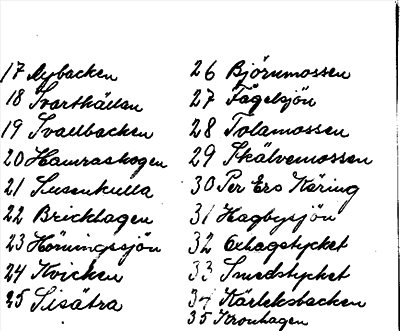 17 Nybacken
18 Svartkällan
19 Svallbacken
20 Hamraskogen
21 Susenkulla
22 Brickhagen
23 Höningssjön
24 Kvicken
25 Sisätra
26 Björnmossen
27 Fågelsjön
28 Tolamossen
29 Skälvemossen
30 Per Ers Käring
31 Hagbysjön
32 Oxhagstycket
33 Smedstycket
34 Kärleksbacken
35 Kronhagen